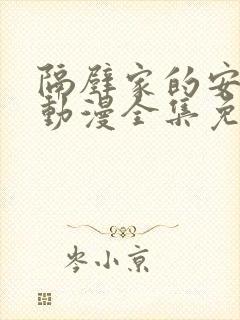 隔壁家的安
動漫全集免
岑小京